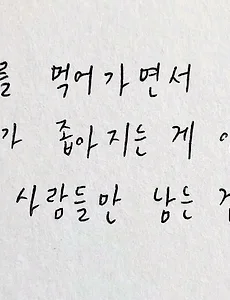 를 먹어가면서
가 좁아지는 게
사람들만 남는